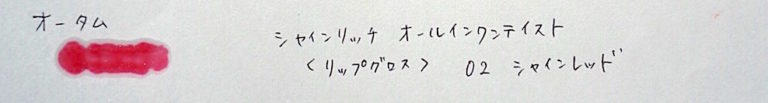 オータム
シャインリッチ オールインワンテイスト
<リップグロス> 02 シャインレッド